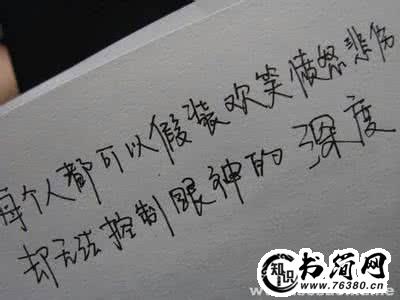 每个人都可以假装欢笑愤怒悲伤
却无法控制眼神的深度
知识
书简网
www.76380.com.cn